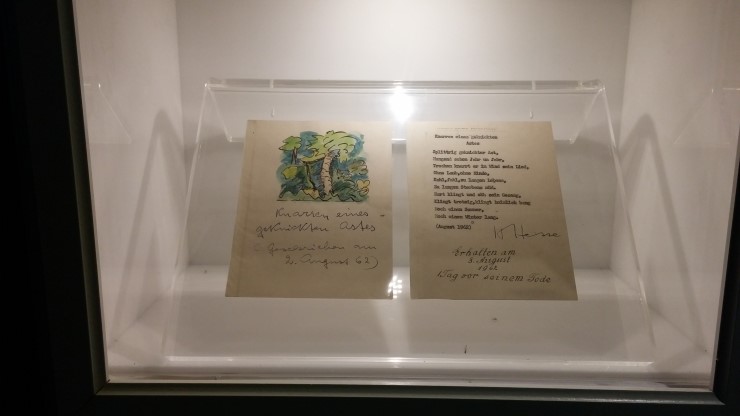 Knarren eines
geknickten Astes
(Geschrieben am
2. August 62)
Knarren eines geknickten
Astes
Splittrig geknickter Ast,
Hangend schon Jahr um Jahr,
Trocken knarrt er im Wind sein Lied,
Ohne Laub, ohne Rinde,
Kahl, fahl, zu langen Lebens,
Zu langen Sterbens müd.
Hart klingt und zäh sein Gesang,
Klingt trotzig, klingt heimlich bang
Noch einen Sommer,
Noch einen Winter lang.
(August 1962)
H Hesse
Erhalten am
8. August
1962
Tag vor seinem Tode